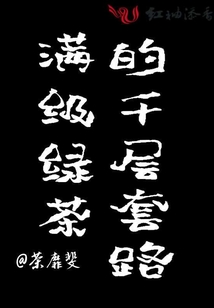 红袖添香
满级绿茶
的千层套路
@荼靡斐